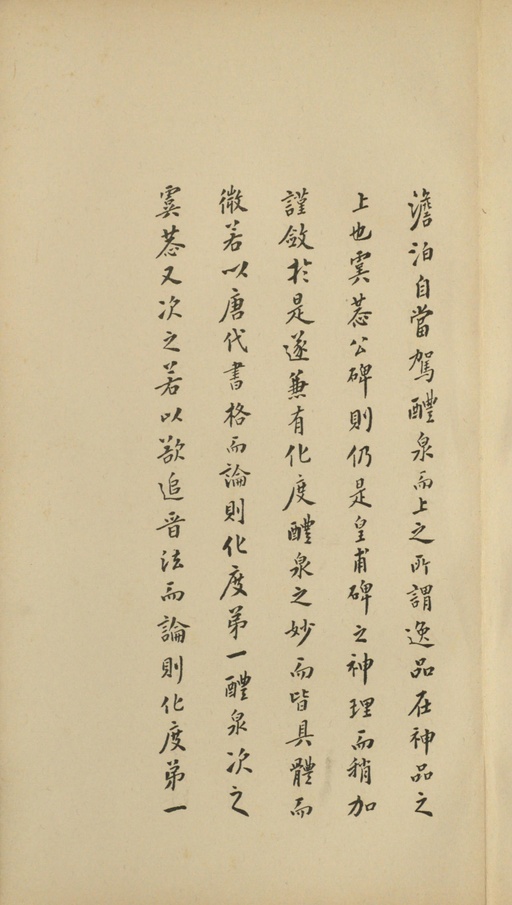 澹泊自當駕醴泉而上之所謂逸品在神品之
上也虞恭公碑則仍是皇甫碑之神理而稍加
謹斂於是遂兼有化度醴泉之妙而皆具體而
微若以唐代書格而論則化度第一醴泉次之
虞恭又次之若以欲追晉法而論則化度第一